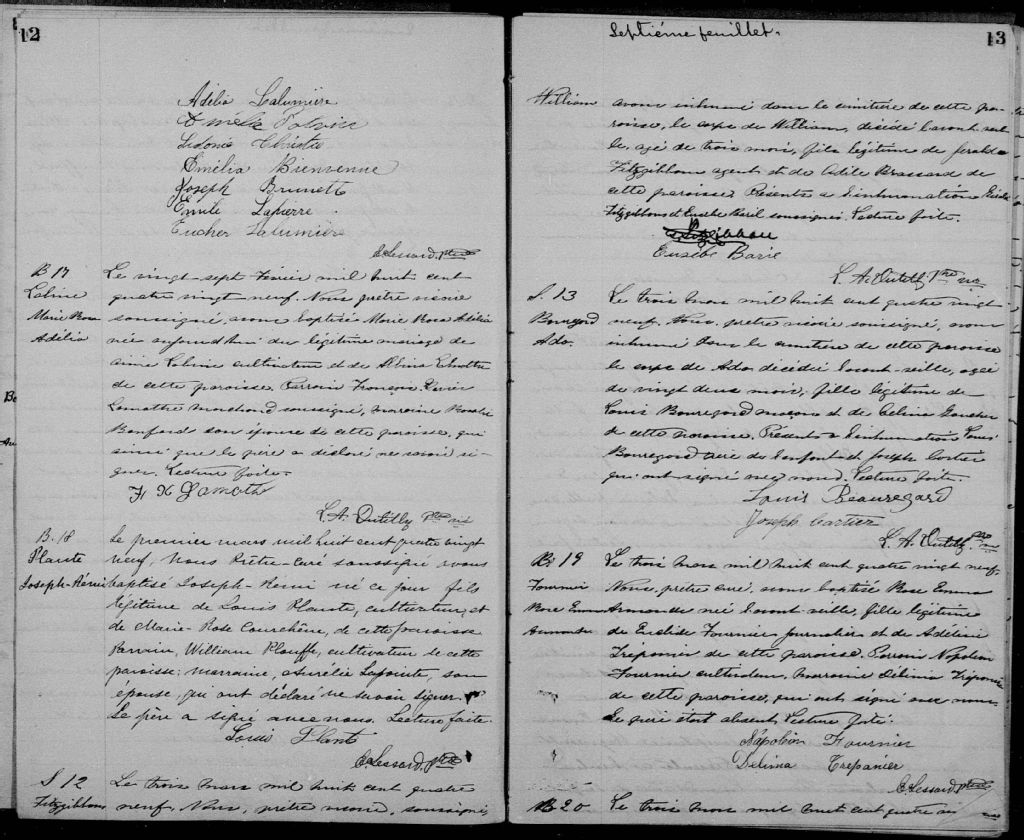 12
Adélia Lalumière
Amelie Potvin
Sidonie Christie
Emélia Bienvenue
Joseph Brunette
Emile Lapierre
Eucher Lalumière
C. Lessard, ptre
B 17
Labine
Marie Rosa
Adélia
Le vingt-sept Février mil huit cent
quatre vingt neuf. Nous prêtre vicaire
soussigné, avons baptisé Marie Rosa Adélia
née aujourd'hui du légitime mariage de
aimé Labine cultivateur et de Albina
de cette paroisse. Parrain François Xavier
Lamothe marchand soussigné, marraine Rosalie
Bonford son épouse de cette paroisse, qui
ainsi que le père a déclaré ne savoir si-
gner. Lecture faite.
F X Lamothe
L. A. Dutilly Ptre vic
B. 18
Plante
Joseph-Rémi
Le premier mars mil huit cent quatre vingt
neuf, Nous Prêtre-Curé soussigné avons
baptisé Joseph-Rémi né ce jour fils
légitime de Louis Plante, cultivateur, et
de Marie-Rose Courchêne, de cette paroisse
Parrain, William Plouffe, cultivateur de cette
paroisse; marraine, Aurélie Lapointe, son
epouse, qui ont déclaré ne savoir signer.
Le père a signé avec nous. Lecture faite.
Louis Plant
C. Lessard, ptre
S 12
Fitzgibbons
Le trois mars mil huit cent quatre
neuf. Nous, prêtre vicaire, soussigné,
Septième feuillet.
13
William
avons inhumé dans le cimitière de cette pa-
roisse, le corps de William, décédé l'avant veil-
le, agé de trois mois, fils légitime de Gerald
Fitzgibbons agent et de Adile Brassard de
cette paroisse. Présents a l'inhumation
Fitzgibbons et Eusèbe Baril soussignés. Lecture faite.
Eusèbe Barie
L. A. Dutilly Ptre vic
S. 13
Bouregard
Ada.
Le trois mars mil huit cent quatre vingt
neuf, Nous, prêtre vicaire soussigné, avons
inhumé dans le cimitière de cette paroisse
le corps de Ada décédée l'avant-veille, agée
de vingt deux mois, fille légitime de
Louis Bouregard maçon et de Celina Goucher
de cette paroisse. Présents a l'inhumation Louis
Bouregard père de l'enfant et Joseph Cartier
qui ont signé avec nous. Lecture faite.
Louis Beauregard
Joseph Cartier
L. A. Dutilly Ptre vic
B. 19
Fournier
Rose Emma
Armande
Le trois mars mil huit cent quatre vingt neuf.
Nous, prêtre curé, avons baptisé Rose Emma
Armande née l'avant veille, fille légitime
de Euclide Fournier journalier et de Adéline
Trepanier de cette paroisse. Parrain Napoléon
Fournier cultivateur, marraine Délima Trépanier
de cette paroisse, qui ont signé avec nous.
Le père était absent. Lecture faite.
Napoléon Fournier
Delima Trepanier
C. Lessard, ptre
B 20
Le trois mars mil huit cent quatre